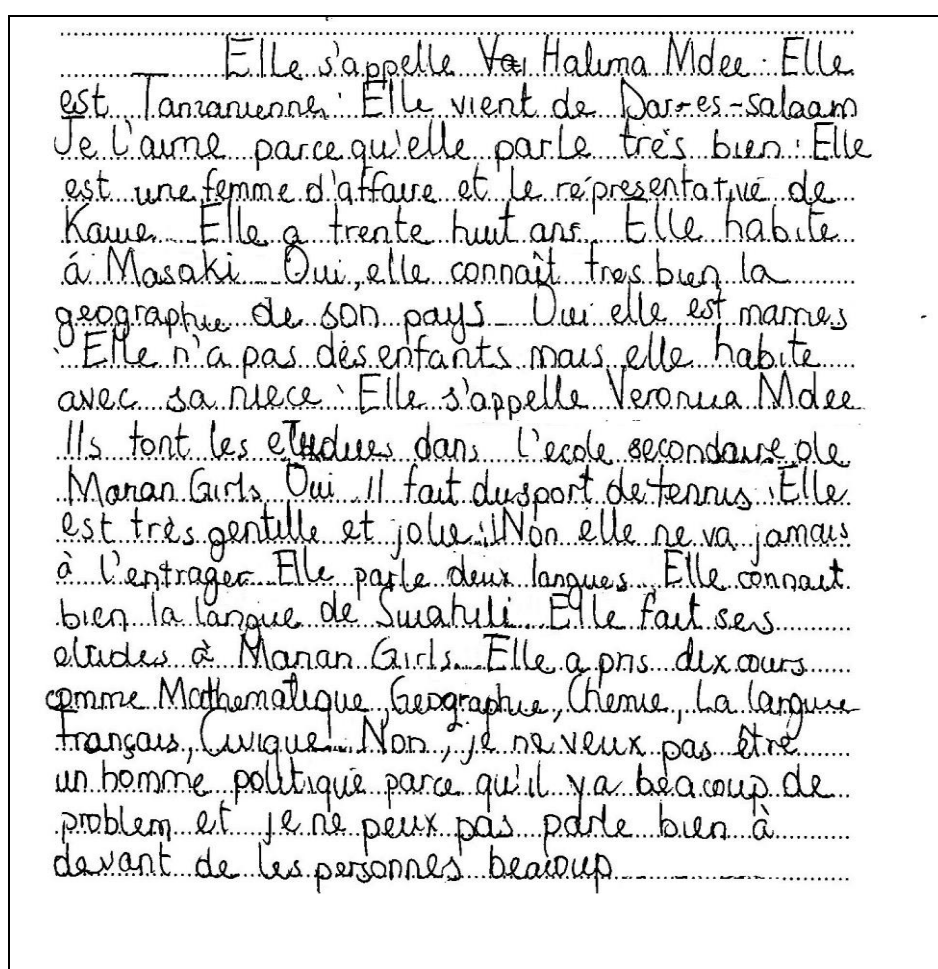 Elle s'appelle Halima Mdee. Elle
est Tanzanienne. Elle vient de Dar-es-salaam
Je l'aime parce qu'elle parle très bien. Elle
est une femme d'affaire et le répresentative de
Kawe. Elle a trente huit ans. Elle habite
á Masaki. Oui, elle connaît tres bien la
geographie de son pays. Oui elle est marries
. Elle n'a pas des enfants mais elle habite
avec sa niece. Elle s'appelle Veronica Mdee
Ils font les etudies dans l'ecole secondaire de
Marian Girls. Oui il fait du sport de tennis. Elle
est très gentille et jolie. Non elle ne va jamais
à l'entrager. Elle parle deux langues. Elle connait
bien la langue de Swahili. Elle fait ses
etudes à Marian Girls. Elle a pris dix cours
comme Mathematique, Geographie, Chemie, La langue
Français, Civique. Non, je ne veux pas être
un homme politique parce qu'il ya beacoup de
problem et je ne peux pas parle bien à
devant de les personnes beacoup